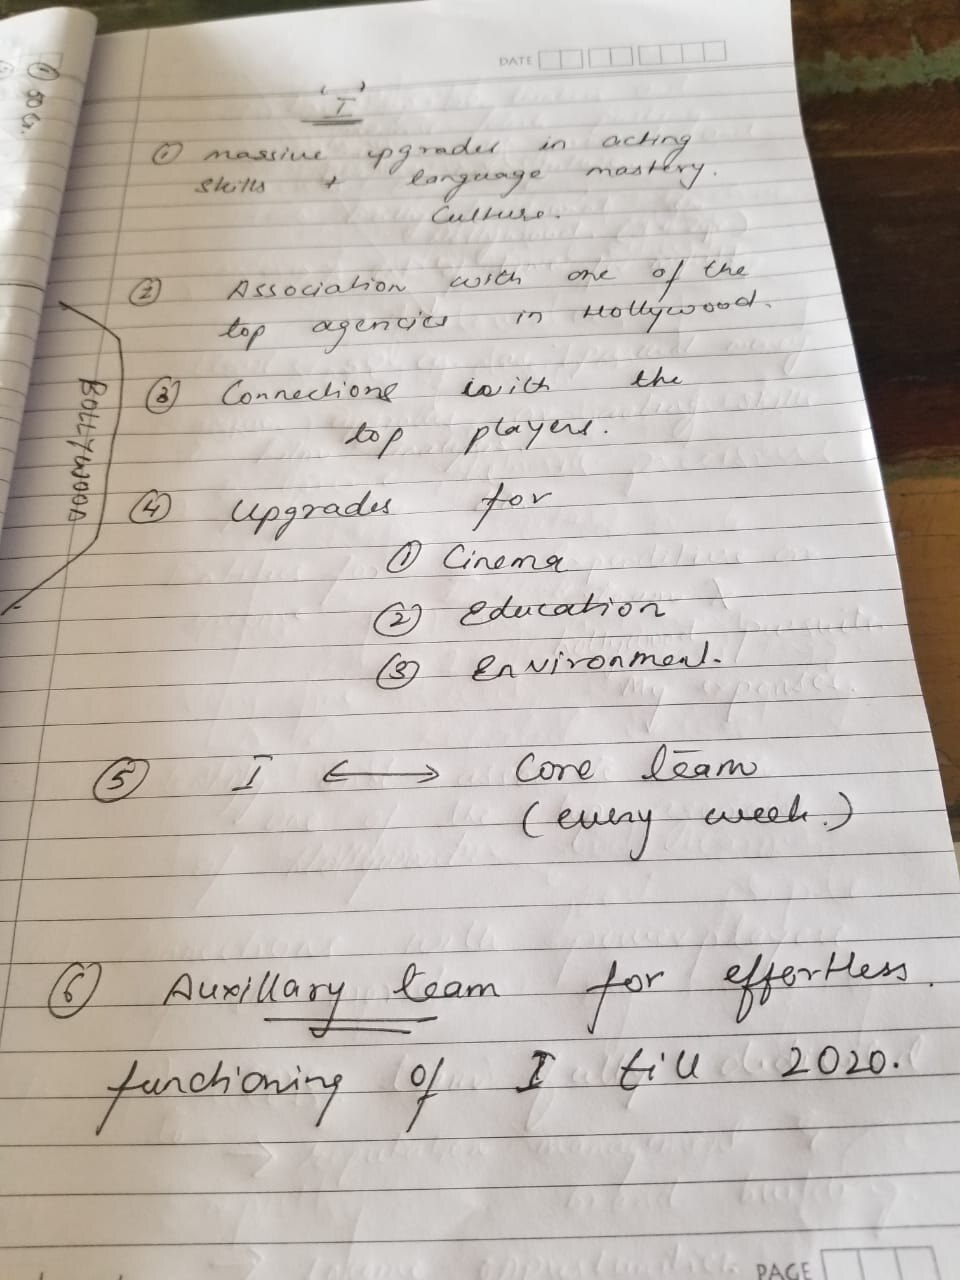 DATE
"I"
① massive upgrades in acting
skills + language mastery.
Culture.
② Association with one of the
top agencies in Hollywood.
③ Connections with the
top players.
④ upgrades for
① Cinema
② Education
③ Environment.
⑤ I ↔ Core team
(every week.)
⑥ Auxillary team for effortless
functioning of I till 2020.
BOLLYWOOD
① 50 Cr.
PAGE